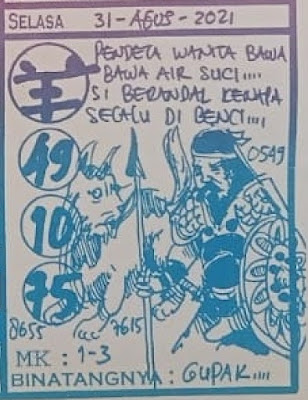 SELASA 31-AGUS-2021
PENDETA WANITA BAWA
BAWA AIR SUCI....
SI BERANDAL KENAPA
SELALU DI BENCI....
羊
0549
49
10
75
8655 7615
MK : 1-3
BINATANGNYA : GUPAK....